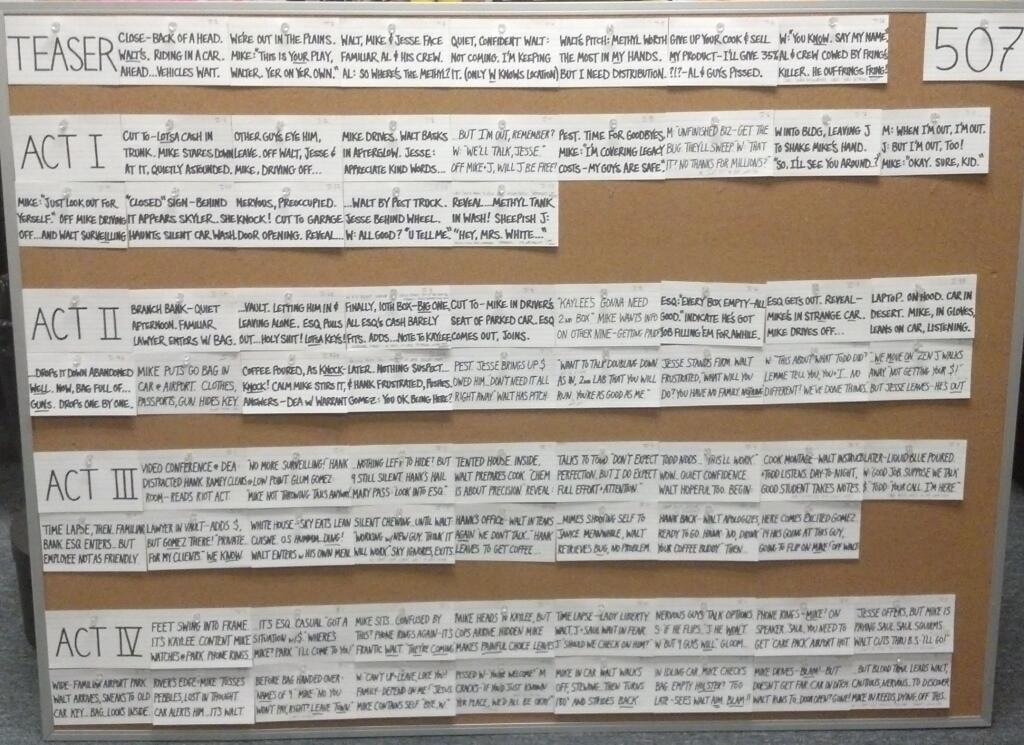 TEASER
CLOSE-BACK OF A HEAD.
WALT'S. RIDING IN A CAR.
AHEAD...VEHICLES WAIT.
WE'RE OUT IN THE PLAINS.
MIKE: "THIS IS YOUR PLAY,
WALTER. YER ON YER OWN."
WALT, MIKE & JESSE FACE
FAMILIAR AL & HIS CREW.
AL: SO WHERE'S THE METHYL?
QUIET, CONFIDENT WALT:
NOT COMING. I'M KEEPING
IT. (ONLY W KNOWS LOCATION)
WALT'S PITCH: METHYL WORTH
THE MOST IN MY HANDS.
BUT I NEED DISTRIBUTION.
GIVE UP YOUR COOK & SELL
MY PRODUCT-I'LL GIVE 35%
?!?-AL & GUYS PISSED.
W: "YOU KNOW. SAY MY NAME."
AL & CREW COWED BY FRING'S
KILLER. HE OUTFRINGS FRING!
507
ACT I
CUT TO-LOTSA CASH IN
TRUNK. MIKE STARES DOWN
AT IT, QUIETLY ASTOUNDED.
OTHER GUYS EYE HIM,
LEAVE. OFF WALT, JESSE &
MIKE, DRIVING OFF...
MIKE DRIVES. WALT BASKS
IN AFTERGLOW. JESSE:
APPRECIATE KIND WORDS...
...BUT I'M OUT, REMEMBER?
W: "WE'LL TALK, JESSE."
OFF MIKE+J, WILL J BE FREE?
PEST. TIME FOR GOODBYES,
MIKE: "I'M COVERING LEGACY
COSTS-MY GUYS ARE SAFE."
M: "UNFINISHED BIZ-GET THE
BUG THEY'LL SWEEP" W: "THAT
IT? NO THANKS FOR MILLIONS?"
W INTO BLDG, LEAVING J
TO SHAKE MIKE'S HAND.
"SO, I'LL SEE YOU AROUND?"
M: WHEN I'M OUT, I'M OUT.
J: BUT I'M OUT, TOO!
MIKE: "OKAY. SURE, KID."
MIKE: "JUST LOOK OUT FOR
YERSELF." OFF MIKE DRIVING
OFF...AND WALT SURVEILLING
"CLOSED" SIGN-BEHIND
IT APPEARS SKYLER...SHE
HAUNTS SILENT CAR WASH.
NERVOUS, PREOCCUPIED.
KNOCK! CUT TO GARAGE
DOOR OPENING. REVEAL...
...WALT BY PEST TRUCK.
JESSE BEHIND WHEEL.
W: ALL GOOD? "U TELL ME."
REVEAL...METHYL TANK
IN WASH! SHEEPISH J:
"HEY, MRS. WHITE..."
ACT II
BRANCH BANK-QUIET
AFTERNOON. FAMILIAR
LAWYER ENTERS W/ BAG.
...VAULT. LETTING HIM IN &
LEAVING ALONE. ESQ PULLS
OUT...HOLY SHIT! LOTSA KEYS!
FINALLY, 10TH BOX-BIG ONE,
ALL ESQ'S CASH BARELY
FITS. ADDS...NOTE TO KAYLEE
CUT TO-MIKE IN DRIVER'S
SEAT OF PARKED CAR. ESQ
COMES OUT, JOINS.
"KAYLEE'S GONNA NEED
2ND BOX" MIKE WANTS INFO
ON OTHER NINE-GETTING PAID?
ESQ: "EVERY BOX EMPTY-ALL
GOOD." INDICATE HE'S GOT
JOB FILLING 'EM FOR AWHILE.
ESQ GETS OUT. REVEAL-
MIKE'S IN STRANGE CAR.
MIKE DRIVES OFF...
LAPTOP. ON HOOD. CAR IN
DESERT. MIKE, IN GLOVES,
LEANS ON CAR, LISTENING.
...DROPS IT DOWN ABANDONED
WELL. NOW, BAG FULL OF...
GUNS. DROPS ONE BY ONE.
MIKE PUTS GO BAG IN
CAR @ AIRPORT. CLOTHES,
PASSPORTS, GUN HIDES KEY
COFFEE POURED, AS KNOCK-
KNOCK! CALM MIKE STIRS IT,
ANSWERS-DEA W/ WARRANT
LATER-NOTHING SUSPECT...
& HANK FRUSTRATED, PUSHES.
GOMEZ: YOU OK BEING HERE?
PEST. JESSE BRINGS UP $
OWED HIM. DON'T NEED IT ALL
RIGHT AWAY. WALT HAS PITCH:
"WANT TO TALK DOUBLING DOWN
AS IN, 2ND LAB THAT YOU WILL
RUN. YOU'RE AS GOOD AS ME."
JESSE STANDS FIRM. WALT
FRUSTRATED, WHAT WILL YOU
DO? YOU HAVE NO FAMILY, NOTHING
W: "THIS ABOUT WHAT TODD DID?
LEMME TELL YOU, YOU+I...NO
DIFFERENT! WE'VE DONE THINGS
WE MOVE ON" 'ZEN J WALKS
AWAY. "NOT GETTING YOUR $!"
BUT JESSE LEAVES-HE'S OUT
ACT III
VIDEO CONFERENCE @ DEA
DISTRACTED HANK. RAMEY CLONES
ROOM-READS RIOT ACT.
"NO MORE SURVEILLING!" HANK
@ LOW POINT. GLUM GOMEZ:
"MIKE NOT THROWING TAILS ANYMORE"
...NOTHING LEFT TO HIDE? BUT
9 STILL SILENT. HANK'S HAIL
MARY PASS-"LOOK INTO ESQ."
TENTED HOUSE. INSIDE,
WALT PREPARES COOK. "CHEM
IS ABOUT PRECISION" REVEAL:
TALKS TO TODD. DON'T EXPECT
PERFECTION, BUT I DO EXPECT
FULL EFFORT+ATTENTION."
TODD NODS. "THIS'LL WORK"
WON. QUIET CONFIDENCE.
WALT HOPEFUL TOO. BEGIN-
COOK MONTAGE-WALT INSTRUCTS
+TODD LISTENS. DAY-TO-NIGHT,
GOOD STUDENT TAKES NOTES.
LATER-LIQUID BLUE POURED.
W: GOOD JOB. SUPPOSE WE TALK
$. TODD: "YOUR CALL, I'M HERE"
TIME LAPSE, THEN, FAMILIAR
BANK. ESQ ENTERS...BUT
EMPLOYEE NOT AS FRIENDLY
LAWYER IN VAULT-ADDS $,
BUT GOMEZ THERE! "PRIVATE...
FOR MY CLIENTS." WE KNOW.
WHITE HOUSE-SKY EATS LEAN
CUISINE. OS HUMMING. DING!
WALT ENTERS W/ HIS OWN MEAL
SILENT CHEWING, UNTIL WALT:
"WORKING W/ NEW GUY. THINK IT
WILL WORK." SKY IGNORES, EXITS
HANK'S OFFICE-WALT IN TEARS
AGAIN. WE DON'T TALK..." HANK
LEAVES TO GET COFFEE...
...MIMES SHOOTING SELF TO
JANICE. MEANWHILE, WALT
RETRIEVES BUG, NO PROBLEM.
HANK BACK-WALT APOLOGIZES,
READY TO GO. HANK: NO, DRINK
YOUR COFFEE, BUDDY" THEN...
HERE COMES EXCITED GOMEZ.
14 HRS GOING AT THIS GUY,
GOING TO FLIP ON MIKE! OFF WALT
ACT IV
FEET SWING INTO FRAME
IT'S KAYLEE. CONTENT MIKE
WATCHES @ PARK. PHONE RINGS.
...IT'S ESQ. CASUAL. "GOT A
SITUATION W/ $." WHERE'S
MIKE? PARK. "I'LL COME TO YOU."
MIKE SITS. CONFUSED BY
THIS? PHONE RINGS AGAIN-IT'S
FRANTIC WALT. "THEY'RE COMING."
MIKE HEADS TO KAYLEE, BUT
COPS ARRIVE. HIDDEN MIKE
MAKES PAINFUL CHOICE LEAVES
TIME LAPSE-LADY LIBERTY.
WALT, J+SAUL WAIT IN FEAR.
J: SHOULD WE CHECK ON HIM?
NERVOUS GUYS TALK OPTIONS
S: IF HE FLIPS. J: HE WON'T.
W: BUT 9 GUYS WILL." GLOOM...
PHONE RINGS-MIKE! ON
SPEAKER. SAUL, YOU NEED TO
GET 'CARE PACK' AIRPORT. HOT
JESSE OFFERS, BUT MIKE IS
PAYING SAUL. SAUL SQUIRMS.
WALT CUTS THRU B.S. I'LL GO!"
WIDE-FAMILIAR AIRPORT PARK
WALT ARRIVES, SNEAKS TO OLD
CAR. KEY...BAG...LOOKS INSIDE.
RIVER'S EDGE-MIKE TOSSES
PEBBLES, LOST IN THOUGHT.
CAR ALERTS HIM...IT'S WALT
BEFORE BAG HANDED OVER-
NAMES OF 9. MIKE-NO. YOU
WON'T PAY, RIGHT? LEAVE TOWN"
W: CAN'T UP+LEAVE, LIKE YOU!
FAMILY DEPEND ON ME! "JESUS
MIKE CONTAINS SELF "BYE, W."
PISSED W: "YOU'RE WELCOME" M
CRACKS-IF YOU'D JUST KNOWN
YER PLACE, WE'D ALL BE OKAY."
MIKE IN CAR. WALT WALKS
OFF, STEWING. THEN TURNS
180° AND STRIDES BACK
IN IDLING CAR, MIKE CHECKS
BAG. EMPTY HOLSTER? TOO
LATE-SEES WALT AIM. BLAM!
MIKE DRIVES-BLAM!-BUT
DOESN'T GET FAR. CAR IN DITCH.
WALT RUNS TO DOOR. OPEN? GONE!
BUT BLOOD TRAIL LEADS WALT,
CAUTIOUS, NERVOUS, TO DISCOVER
MIKE IN REEDS, DYING. OFF THIS.